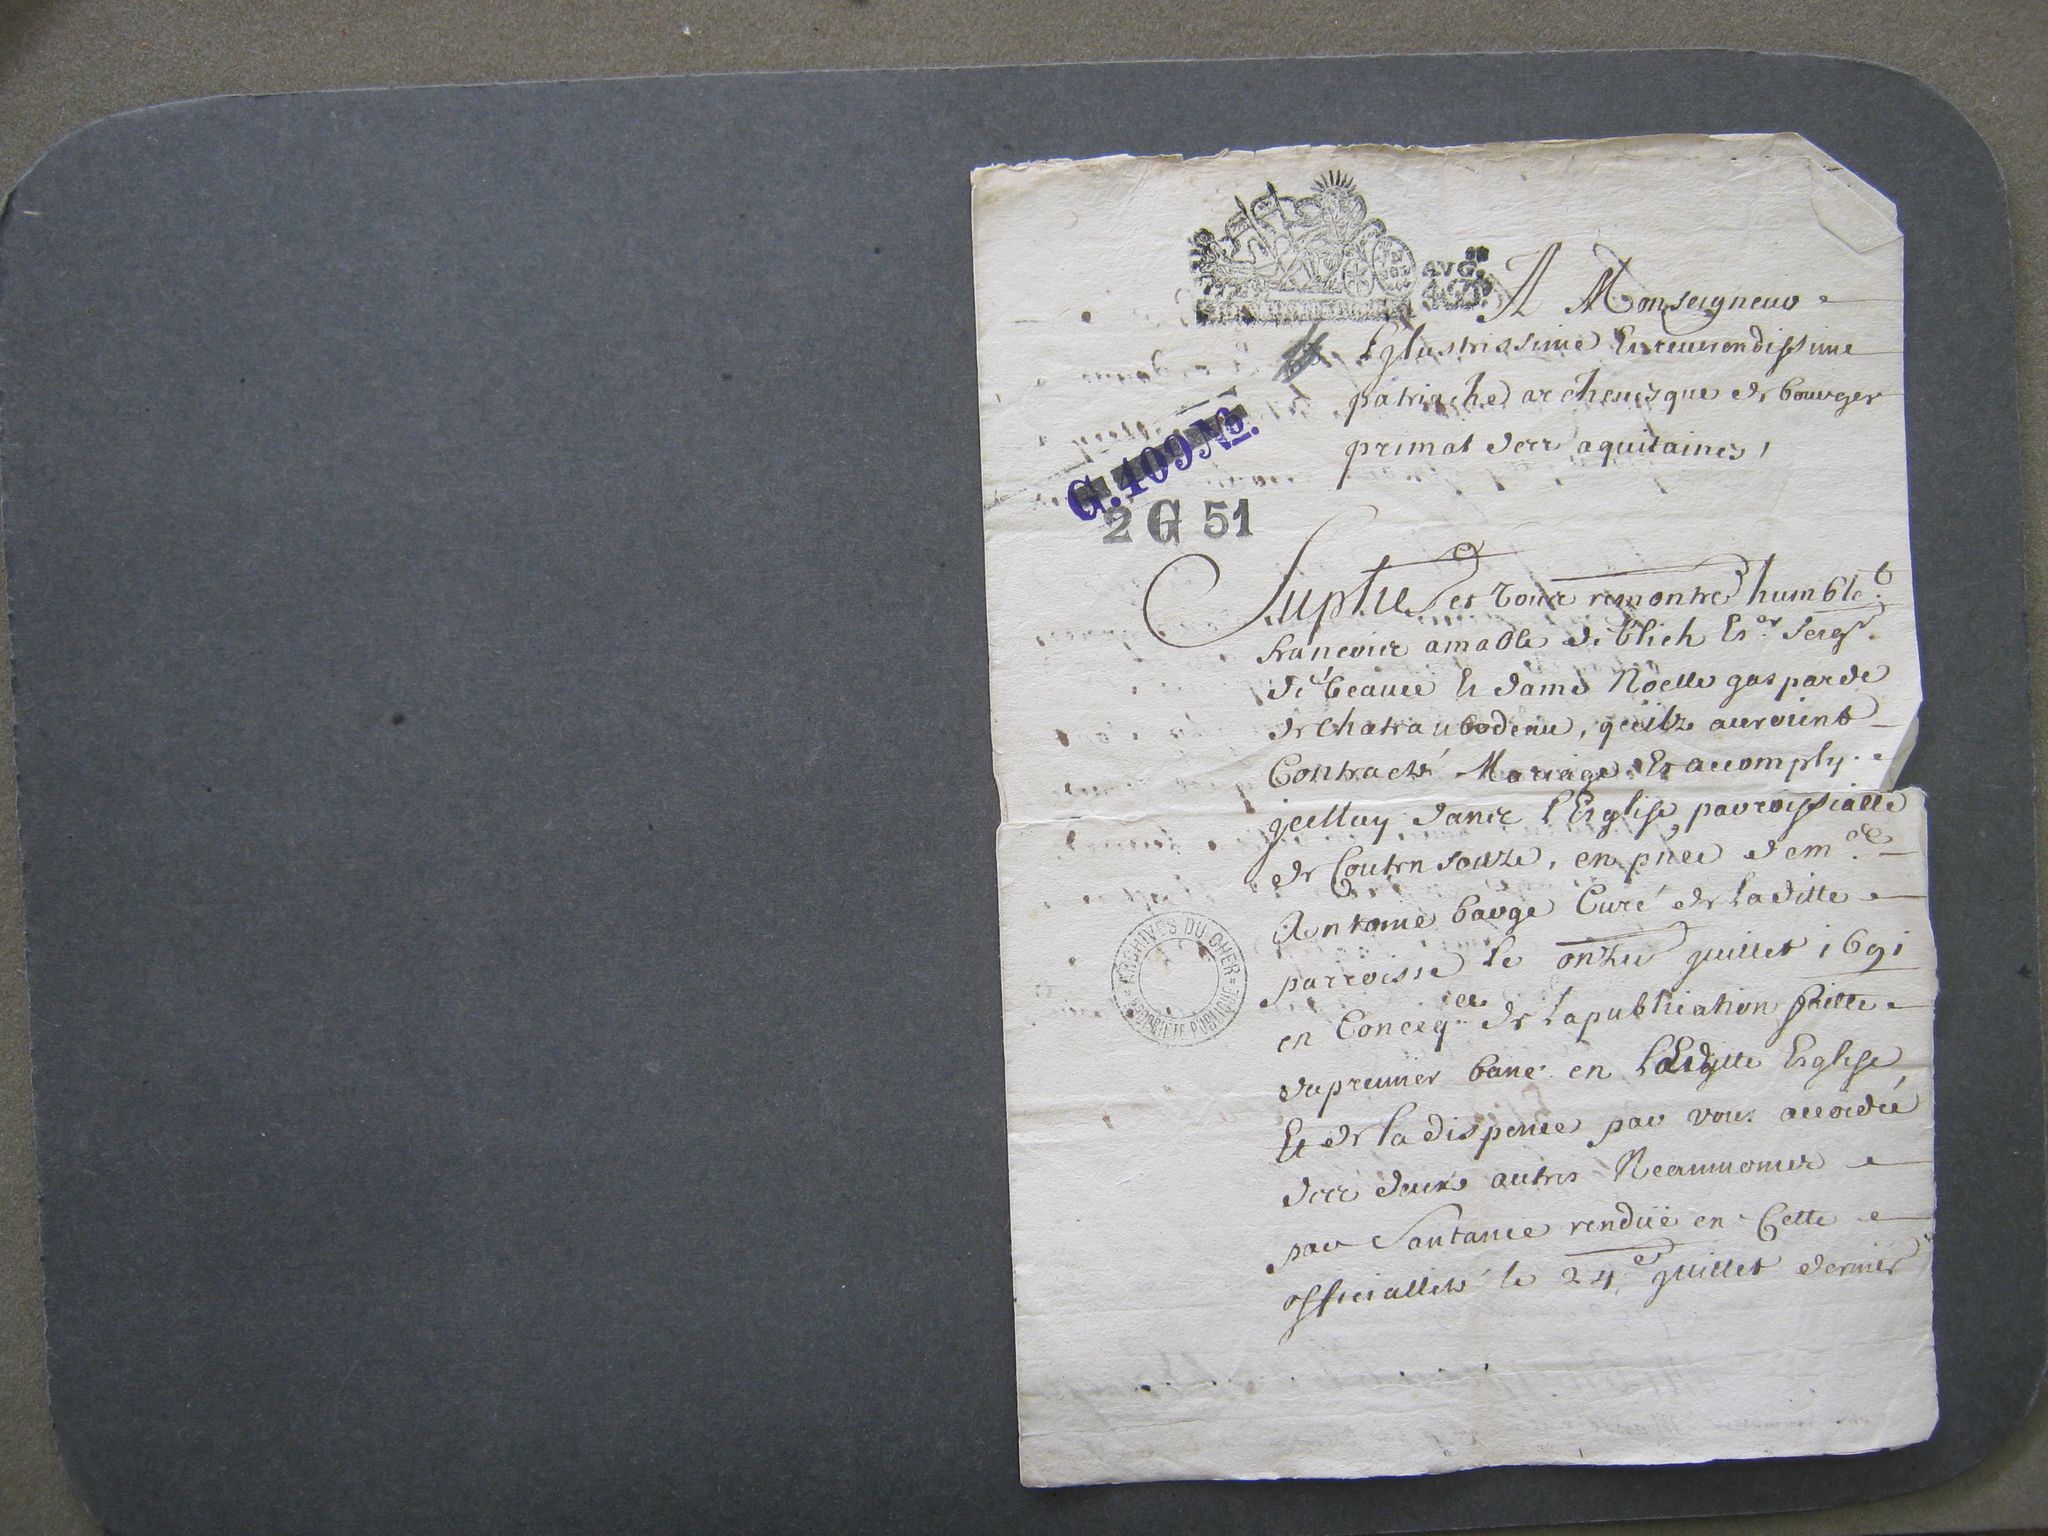 AVG.
A Monseigneur
Illustrissime Et reverendissime
patriache archevesque de bourges
primat des aquitaines,
G. 409 No.
2 G 51
Suplie et vous remontre humblet.
francois amable de blich Esor. Seigr.
de beauce Et dame Noelle gasparde
de chateaubodeau, quilz auroient
Contracté Mariage Et accomply
jcelluy dans l'Esglise parroissialle
de Coutansouze, en pnce de me.
Antoine bauge Curé de Laditte
parroisse le onzie juillet 1691
en Conceqce de La publication faitte
du premier banc en Laditte Esglise
Et de la dispence par vous accordée
des deux autres Neanmoins
par Santance rendüe en Cette
officiallité le 24e juillet dernier
ARCHIVES DU CHER
PROPRIETE PUBLIQUE